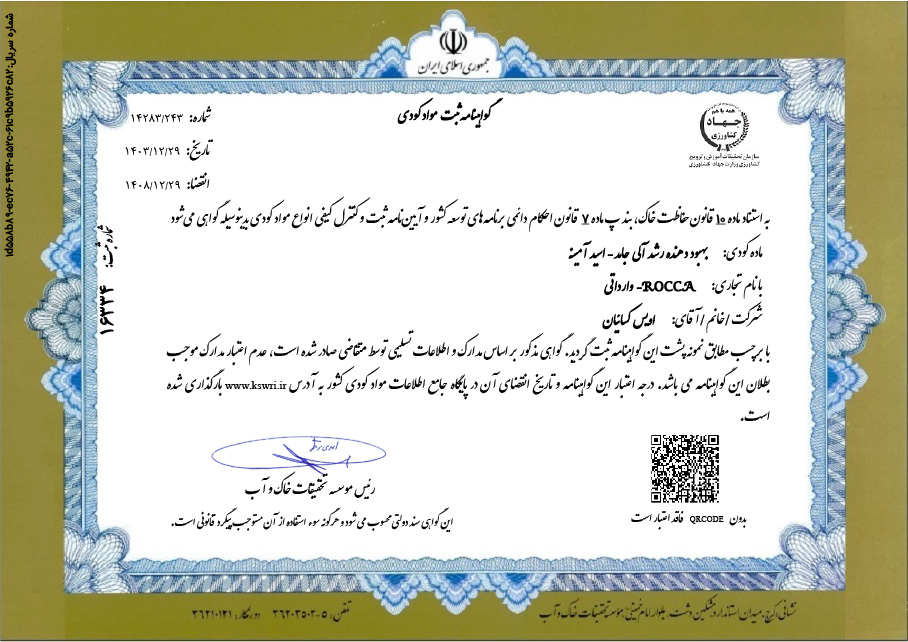 جمهوری اسلامی ایران
همه با هم
جهاد
کشاورزی
سازمان تحقیقات، آموزش و ترویج
کشاورزی وزارت جهاد کشاورزی
گواهینامه ثبت مواد کودی
شماره: ۱۴۲۸۳/۲۴۳
تاریخ: ۱۴۰۳/۱۲/۲۹
انقضا: ۱۴۰۸/۱۲/۲۹
شماره ثبت: ۱۶۳۳۴
به استناد ماده ۱۰ قانون حفاظت خاک، بند پ ماده ۷ قانون احکام دائمی برنامه های توسعه کشور و آیین نامه ثبت و کنترل کیفی انواع مواد کودی بدینوسیله گواهی می شود
ماده کودی: بهبود دهنده رشد آلی جامد - اسید آمینه
با نام تجاری: ROCCA- وارداتی
شرکت / خانم / آقای: اویس کیانیان
با برچسب مطابق نمونه پشت این گواهینامه ثبت گردید. گواهی مذکور بر اساس مدارک و اطلاعات تسلیمی توسط متقاضی صادر شده است، عدم اعتبار مدارک موجب
بطلان این گواهینامه می باشد. درجه اعتبار این گواهینامه و تاریخ انقضای آن در پایگاه جامع اطلاعات مواد کودی کشور به آدرس www.kswri.ir بارگذاری شده
است.
رئیس موسسه تحقیقات خاک و آب
بدون QRCODE فاقد اعتبار است
این گواهی سند دولتی محسوب می شود و هرگونه سوء استفاده از آن مستوجب پیگرد قانونی است.
نشانی: کرج، میدان استاندارد، مشکین دشت، بلوار امام خمینی، موسسه تحقیقات خاک و آب
تلفن: ۵-۳۶۲۰۳۵۰۳ دورنگار: ۳۶۲۱۰۱۲۱